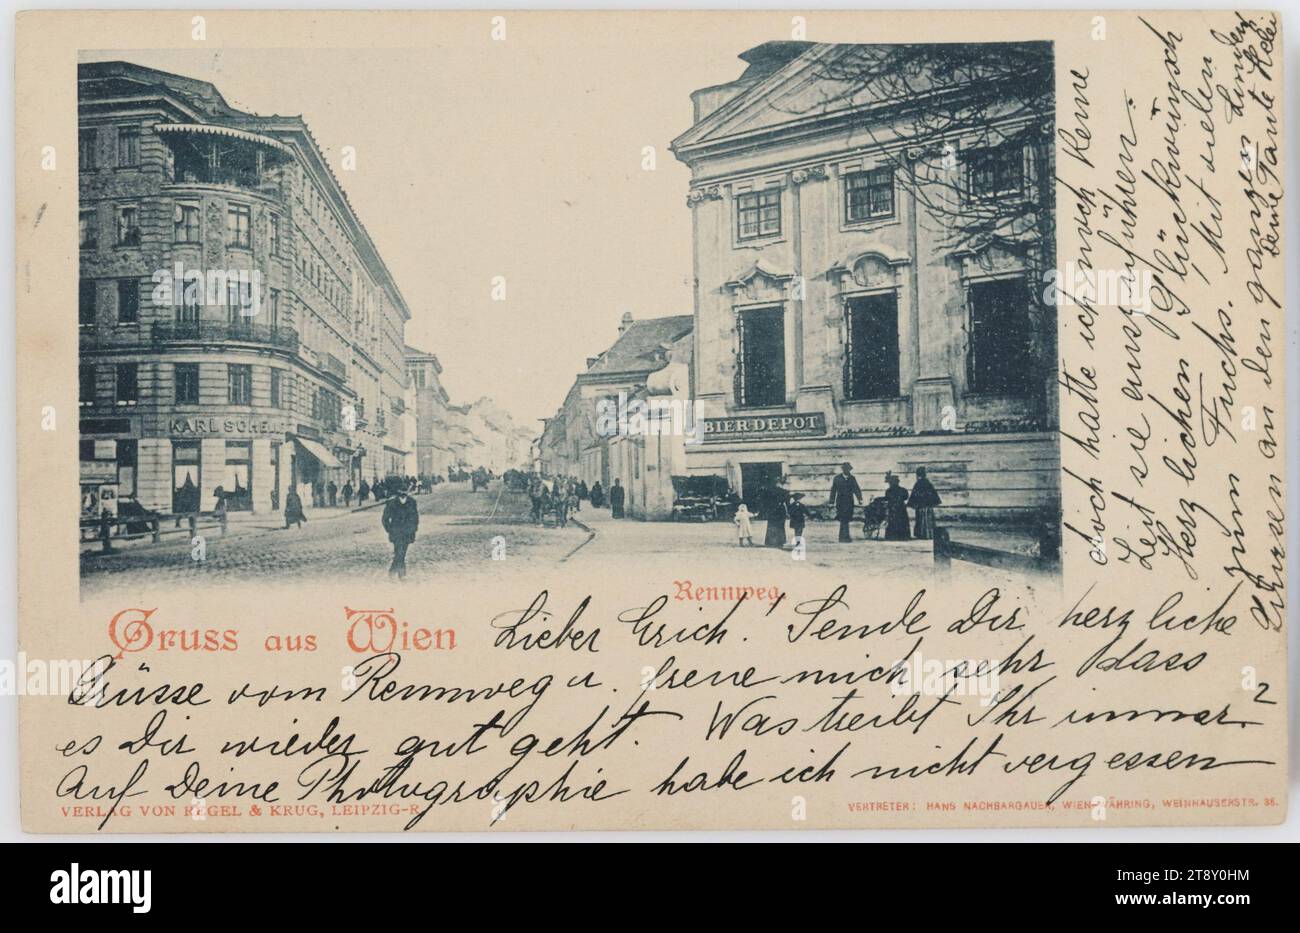 KARL SCHE
BIERDEPOT
Rennweg.
Gruss aus Wien
Lieber Erich! Sende Dir herzliche
Grüsse vom Rennweg u. freue mich sehr dass
es Dir wieder gut geht. Was treibt Ihr immer?
Auf Deine Photographie habe ich nicht vergessen
doch hatte ich noch keine
Zeit sie auszuführen.
Herzlichen Glückwunsch
zum Fuchs. Mit vielen
Grüssen an den ganzen Linden
Deine Tante
VERLAG VON REGEL & KRUG, LEIPZIG-R.
VERTRETER: HANS NACHBARGAUER, WIEN-WÄHRING, WEINHAUSERSTR. 36.
alamy
alamy
Image ID: 2T8Y0HM
www.alamy.com